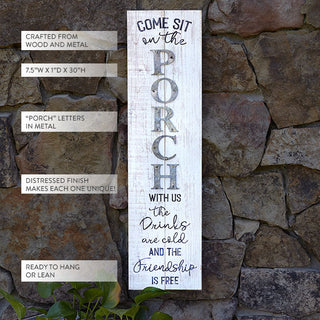 COME SIT
on the
PORCH
WITH US
the
Drinks
are cold
AND THE
Friendship
IS FREE
CRAFTED FROM
WOOD AND METAL
7.5"W X 1"D X 30"H
"PORCH" LETTERS
IN METAL
DISTRESSED FINISH
MAKES EACH ONE UNIQUE!
READY TO HANG
OR LEAN